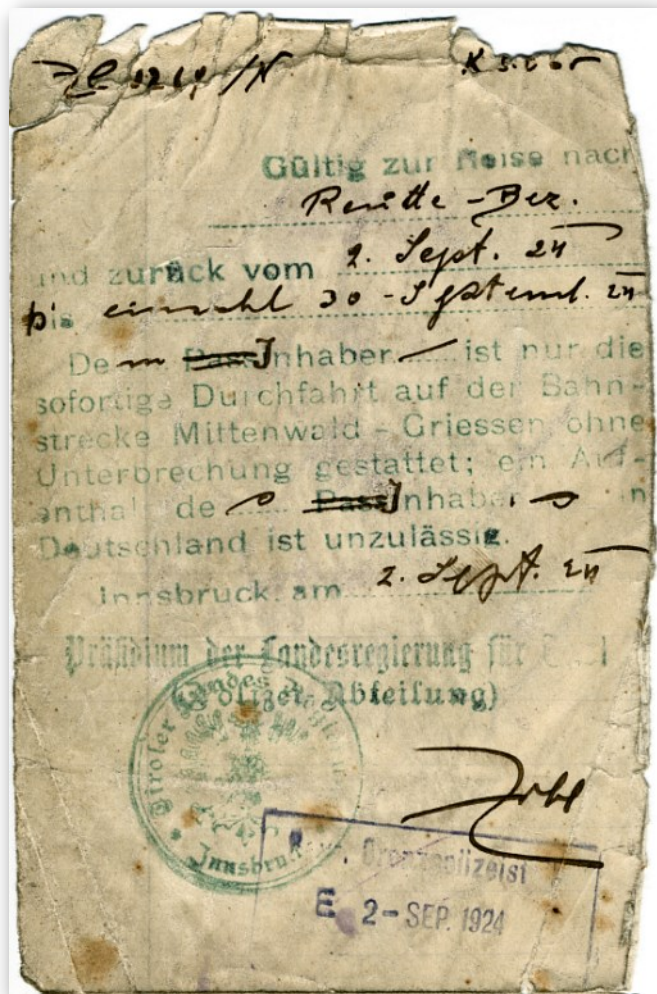 Gültig zur Reise nach
Reutte - Bez.
und zurück vom 2. Sept. 24
bis 30 - Septemb. 24
De m Pass Inhaber ist nur die
sofortige Durchfahrt auf der Bahn-
strecke Mittenwald - Griessen ohne
Unterbrechung gestattet; ein Auf-
enthalt de Pass Inhaber in
Deutschland ist unzulässig.
Innsbruck, am 2. Sept. 24
Präsidium der Landesregierung für Tirol
(Polizei-Abteilung)
Tiroler Landes
Innsbruck
Grenzpolizei
E 2 - SEP. 1924